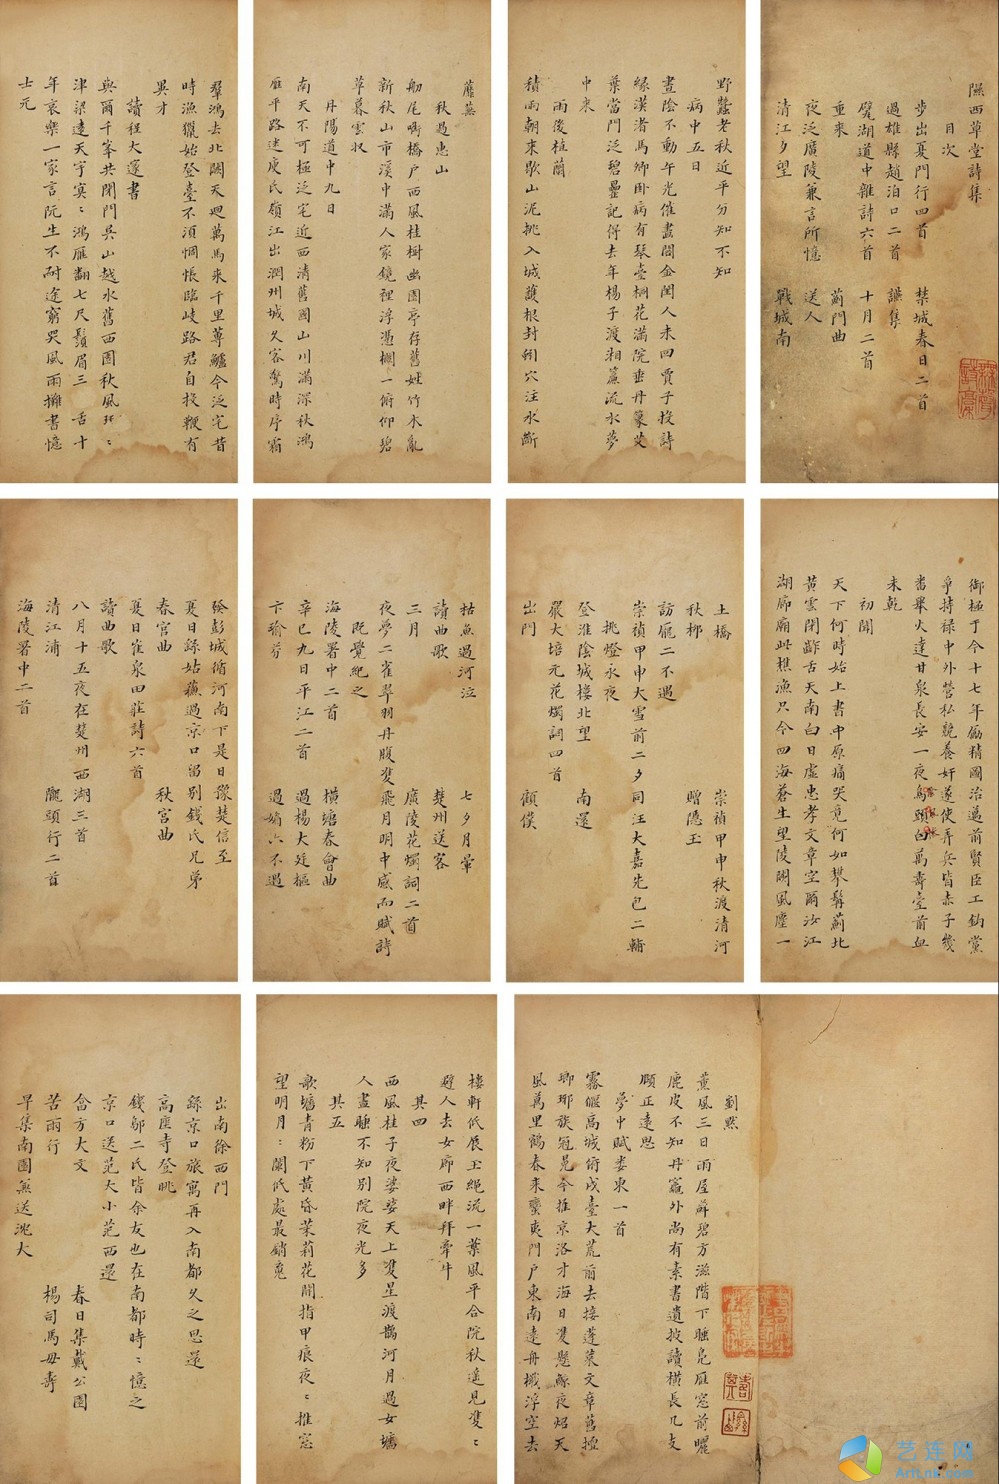 隰西草堂詩集
目次
步出夏門行四首 禁城春日二首
過雄縣趙泊口二首 讌集
甓湖道中雜詩六首 十月二首
重來 薊門曲
夜泛廣陵兼言所憶 送人
清江夕望 戰城南
野蠶老秋近平分知不知
病中五日
晝陰不動午光催畫閣金閨人未回賈子投詩
緣漢渚馬卿卧病有琴臺榴花滿院垂丹篆艾
葉當門泛碧罍記得去年楊子渡湘簾流水夢
中來
雨後植蘭
積雨朝來歇山泥挑入城護根封蚓穴注水斷
蘼蕪
秋過惠山
舠尾嘶橋戶西風桂樹幽園亭存舊姓竹木亂
新秋山市溪中滿人家鏡裡浮憑欄一俯仰碧
草暮雲收
丹陽道中九日
南天不可極泛宅近西清舊國山川滿深秋鴻
雁平路迷庾氏嶺江出潤州城久客驚時序霜
羣鴻去北闕天迴萬馬來千里蓴鱸今泛宅昔
時漁獵始登臺不須惆悵臨歧路君自投鞭有
異才
讀程大邃書
與爾千峯共閉門吳山越水舊西園秋風玨ミ
津梁遠天宇寞ミ鴻雁翻七尺鬚眉三舌十
年哀樂一家言阮生不耐途窮哭風雨攤書憶
士元
御極于今十七年勵精圖治邁前賢臣工鈎黨
爭持祿中外營私競養奸遂使弄兵皆赤子幾
番舉火達甘泉長安一夜烏頭白萬壽臺前血
未乾
初聞
天下何時始上書中原痛哭竟何如攀髯薊北
黃雲閉齚舌天南白日虛忠孝文章空爾汝江
湖廊廟此樵漁只今四海蒼生望陵闕風塵一
土橋 崇禎甲申秋渡清河
秋柳 贈隱玉
訪龐二不遇
崇禎甲申大雪前二夕同汪大嘉先包二輔
挑燈永夜
登淮陰城樓北望 南還
嚴大培元花燭詞四首
出門 顧僕
枯魚過河泣 七夕月暈
讀曲歌 楚州送客
三月 廣陵花燭詞二首
夜夢二雀翠羽丹腹雙飛月明中感而賦詩
既覺紀之
海陵署中二首 橫塘春會曲
辛巳九日平江二首 過楊大廷樞
卞瑜芬 過嫡六不遇
發彭城循河南下是日豫楚信至
夏日繇姑蘇過京口留別錢氏兄弟
春宮曲 秋宮曲
夏日雀泉田莊詩六首
讀曲歌
八月十五夜在楚州西湖三首
清江浦 隴頭行二首
海陵署中二首
劉然
薰風三日雨屋蘚碧方滋階下睡鳧雁窓前曬
鹿皮不知丹竈外尚有素書遺披讀橫長几支
頤正遠思
夢中賦婁東一首
霧偃高城衛戍臺大荒前去接蓬萊文章舊擅
瑯琊族冠冕今推京洛才海日雙懸鯨夜炤天
風萬里鶴春來蠻夷門戶東南遠舟檝浮空去
樓軒低辰玉繩流一葉風平合院秋遥見雙ミ
避人去女廊西畔拜牽牛
其四
西風桂子夜婆娑天上雙星渡鵲河月過女墻
人盡睡不知別院夜光多
其五
歌墻青粉下黃昏茉莉花開指甲痕夜ミ推窓
望明月ミ闌低處最銷䰟
出南徐西門
繇京口旅寓再入南都久之思還
高座寺登眺
錢鄔二氏皆余友也在南都時ミ憶之
京口送范大小范西還
㑹方大文 春日集戴公園
苦雨行 楊司馬母壽
早集南園兼送沈大
艺连网